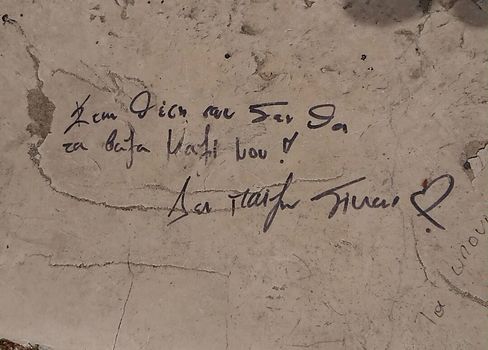 Στη θέση σου δεν θα
τα βαζα μαζί μου!
Δεν παίζω δίκαια